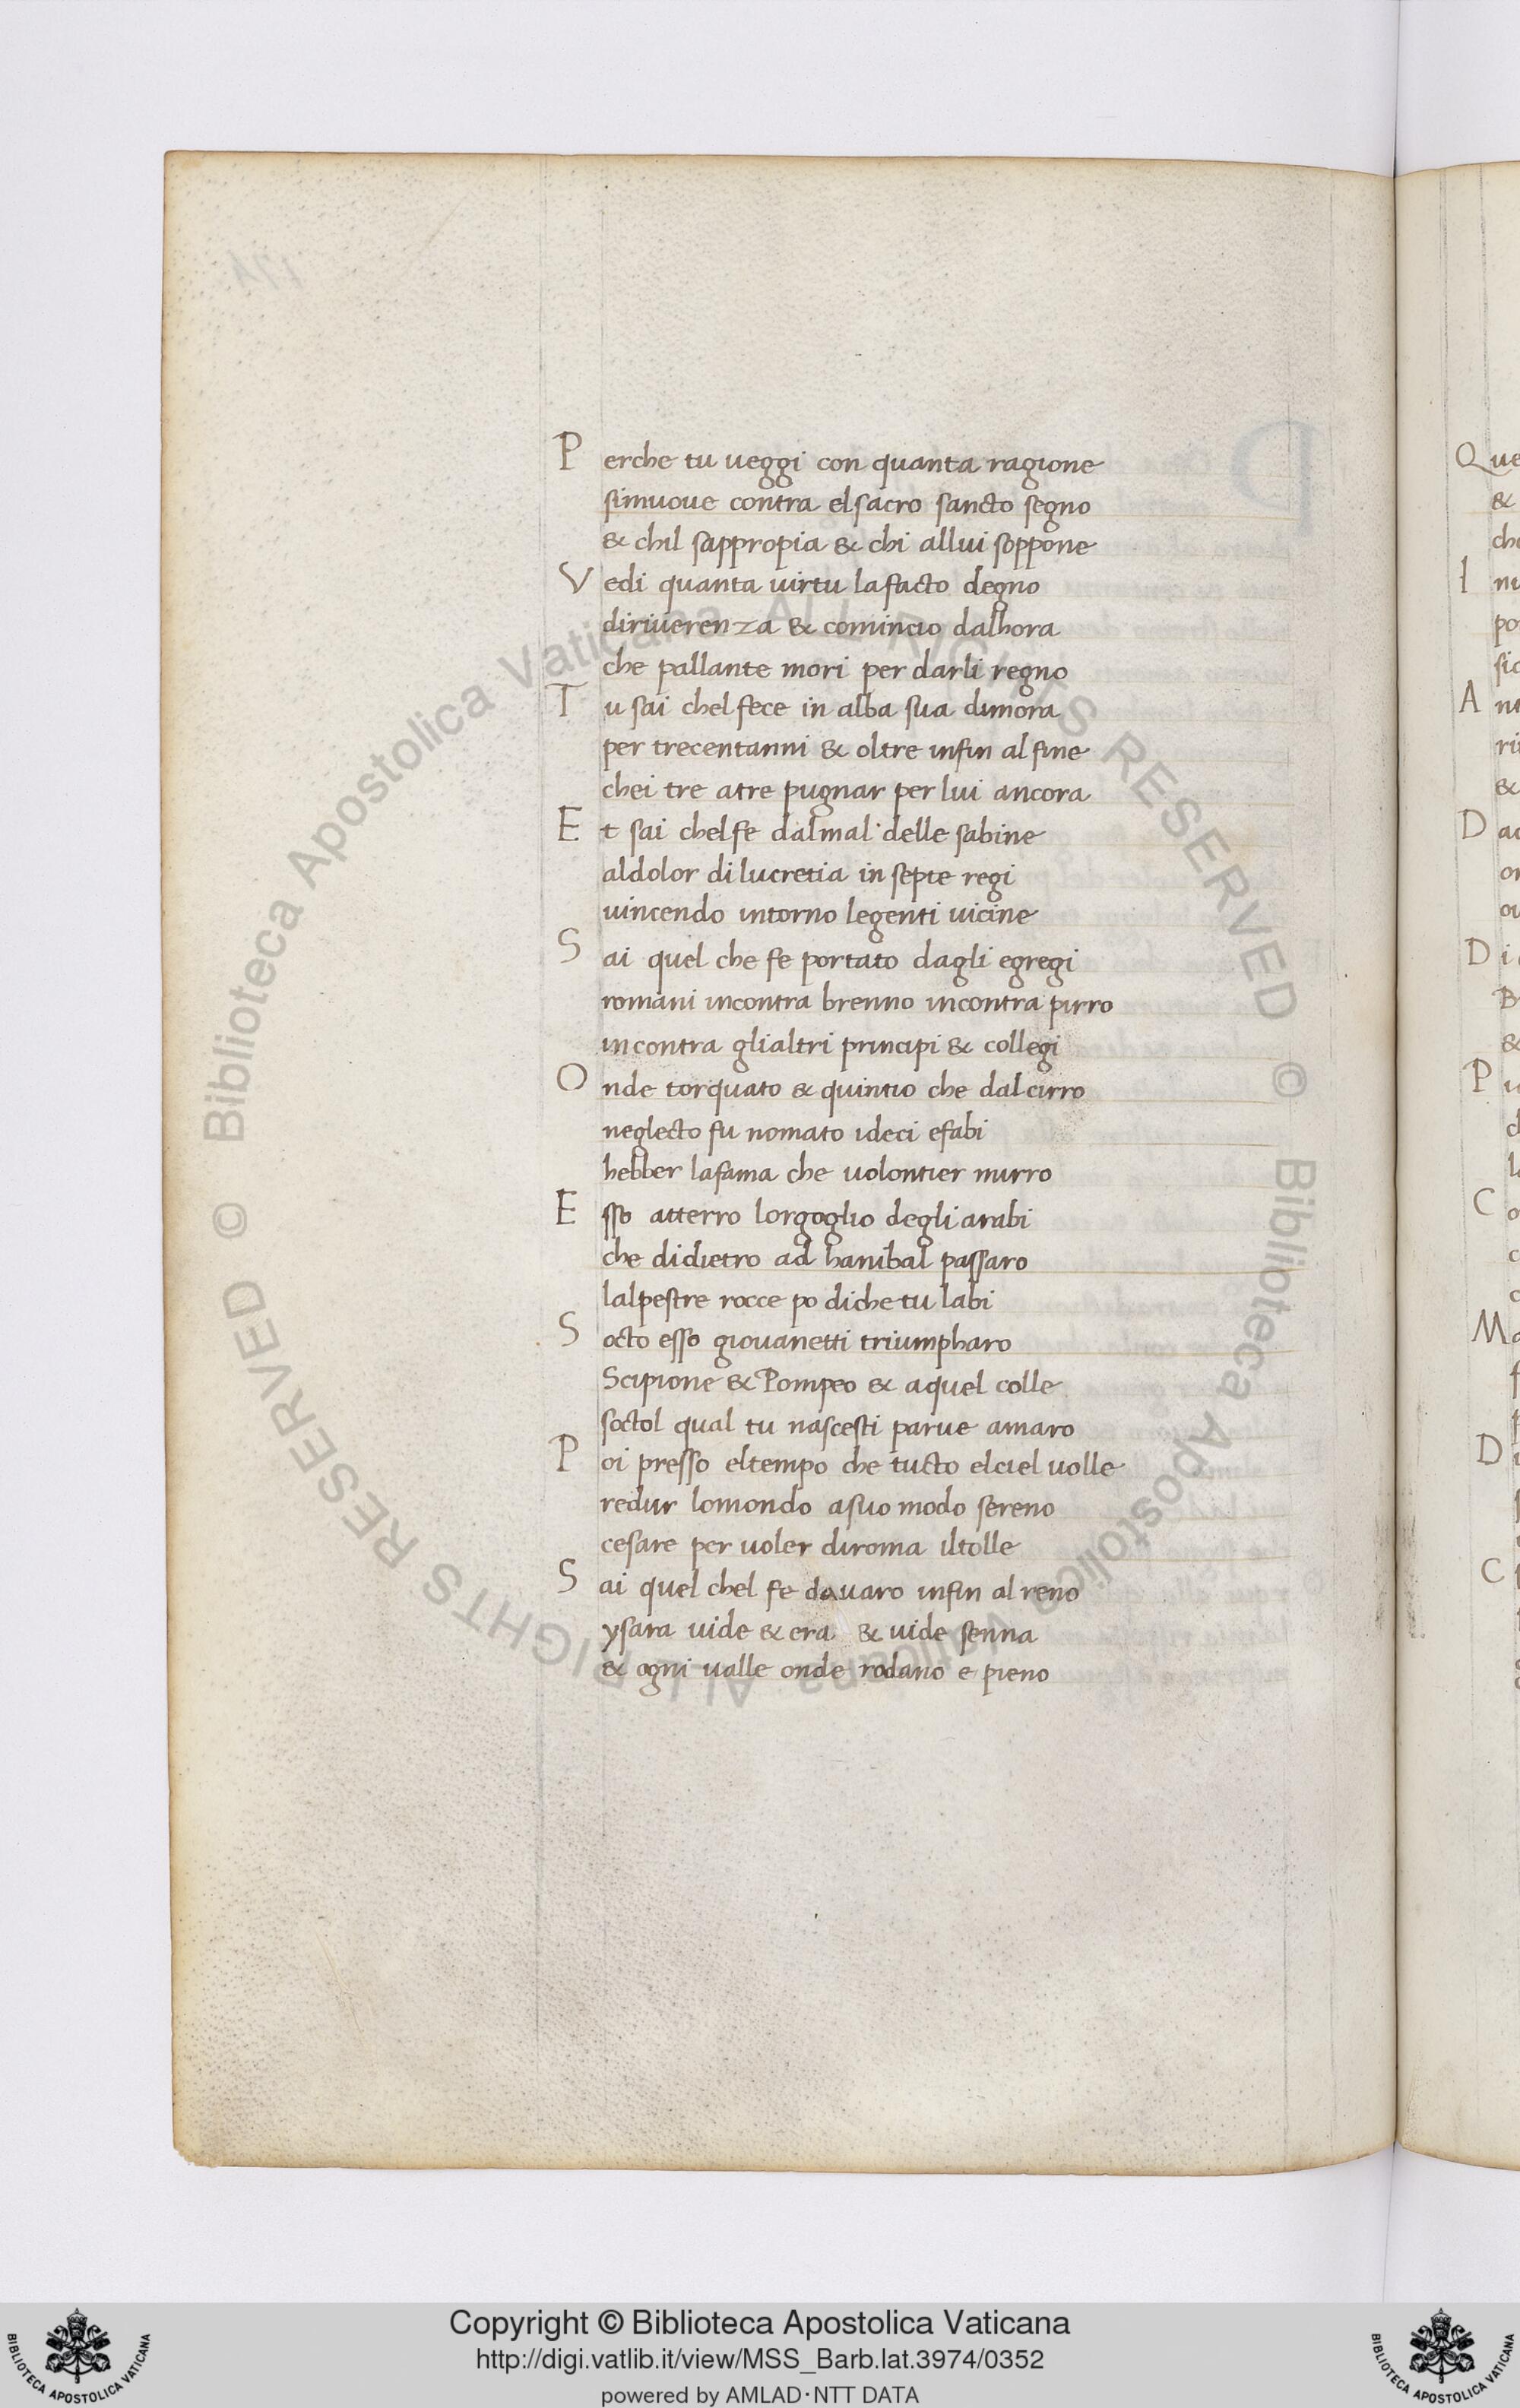 Perche tu ueggi con quanta ragione
simuoue contra elsacro sancto segno
& chil sappropia & chi allui soppone
Vedi quanta uirtu lafacto degno
diriuerenza & comincio dalhora
che pallante mori per darli regno
Tu sai chel fece in alba sua dimora
per trecentanni & oltre infin al fine
chei tre atre pugnar per lui ancora
Et sai chelfe dalmal delle sabine
aldolor di lucretia in septe regi
uincendo intorno legenti uicine
Sai quel che fe portato dagli egregi
romani incontra brenno incontra pirro
incontra glialtri principi & collegi
Onde torquato & quintio che dalcirro
neglecto fu nomato ideci efabi
hebber lafama che uolontier mirro
Esso atterro lorgoglio degli arabi
che didietro ad hanibal passaro
lalpestre rocce po diche tu labi
Socto esso giouanetti triumpharo
Scipione & Pompeo & aquel colle
soctol qual tu nascesti parue amaro
Poi presso eltempo che tucto elciel uolle
redur lomondo asuo modo sereno
cesare per uoler diroma iltolle
Sai quel chel fe dauaro infin al reno
ysara uide & era & uide senna
& ogni ualle onde rodano e pieno
Que
&
I
A
&
D
D i
&
P
C
M
D
C
© Biblioteca Apostolica Vaticana ALL RIGHTS RESERVED
© Biblioteca Apostolica Vaticana ALL RIGHTS RESERVED
Copyright © Biblioteca Apostolica Vaticana
http://digi.vatlib.it/view/MSS_Barb.lat.3974/0352
powered by AMLAD·NTT DATA
BIBLIOTECA APOSTOLICA VATICANA
BIBLIOTECA APOSTOLICA VATICANA